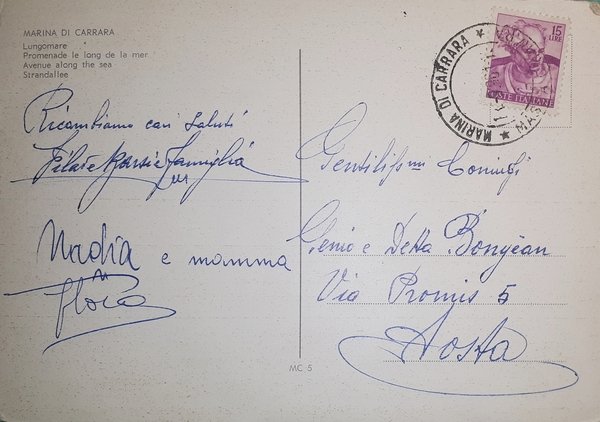 MARINA DI CARRARA
Lungomare
Promenade le long de la mer
Avenue along the sea
Strandallee
Ricambiamo cari saluti
famiglia
Nadia e mamma
Flora
15
LIRE
POSTE ITALIANE
MARINA DI CARRARA
Gentilissimi Coniugi
Genio e Detta Bongean
Via Promis 5
Aosta
MC 5